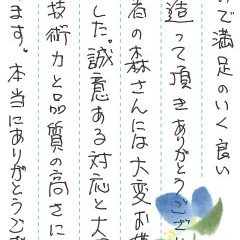 で満足のいく良い
造って頂きありがとうござ
者の森さんには大変お
した。誠意ある対応と大
技術力と品質の高さに
ます。本当にありがとうご